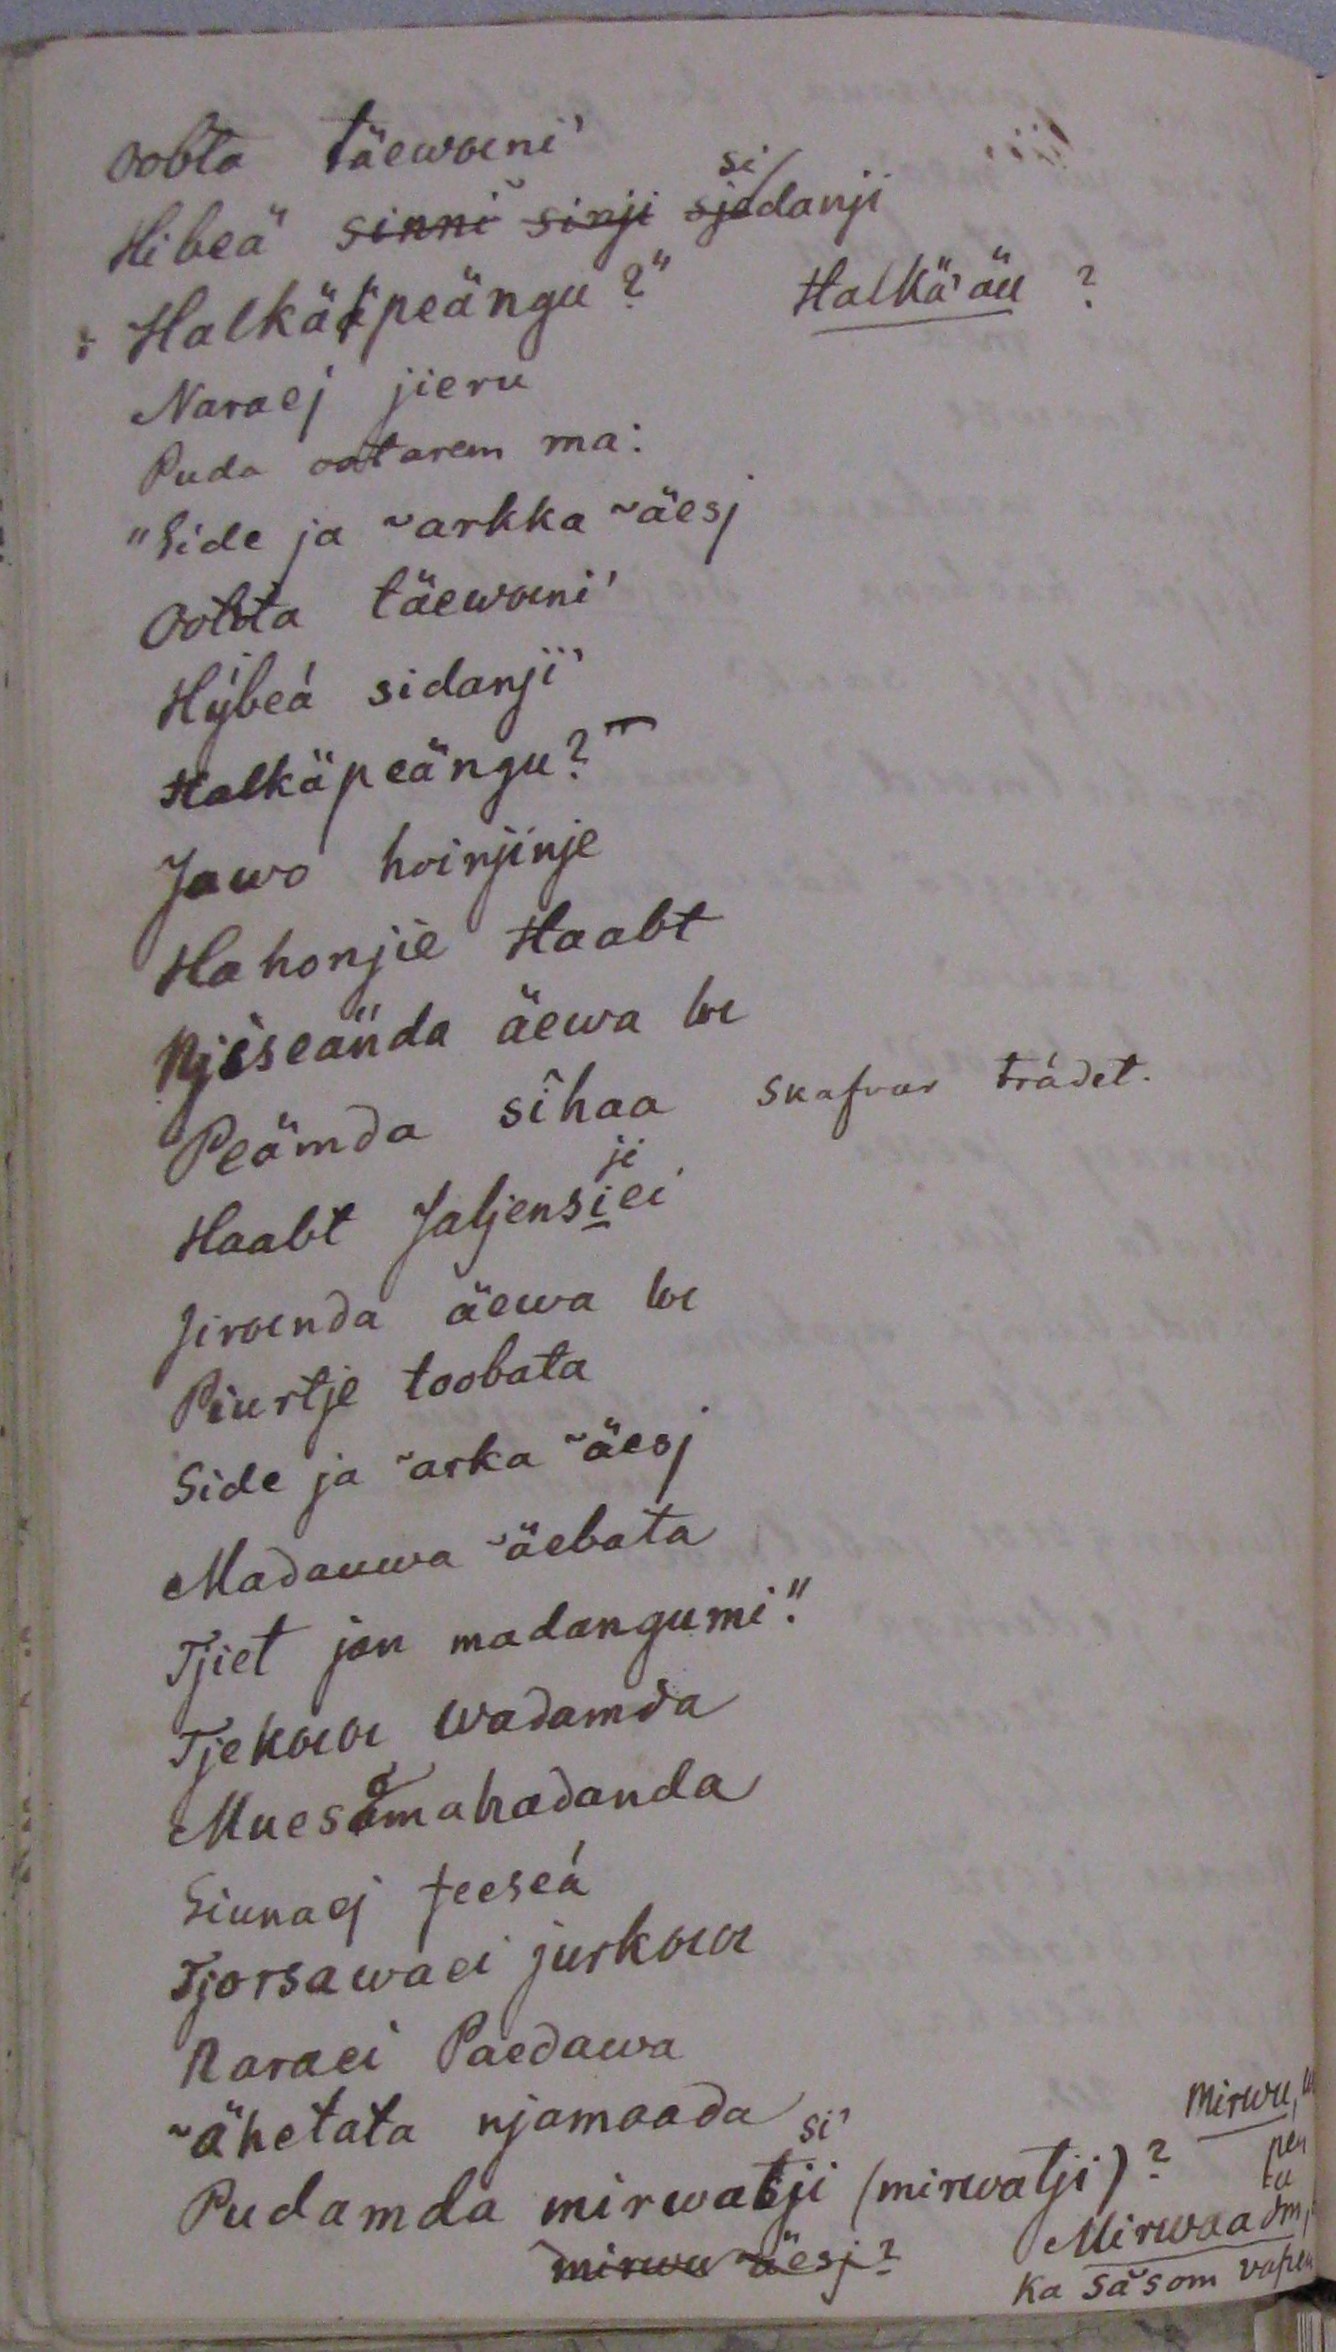 oobta täewœni'
Hibeä sinni sinji sjedanji si
Halkäpeängu?" Halkä'äu ?
Naraej jieru
Puda oatarem ma:
"Side ja ~arkka ~äesj
Oobta täewœni'
Hýbeá sidanji'
Halkäpeängu?"
Jawo hoinjinje
Hahonjie Haabt
Njeseända äewa hœ
Peämda sîhaa skafvar trädet.
Haabt Jaljensiei ji
Jirœnda äewa hœ
Piurtje toobata
Side ja ~arka ~äesj
Madauwa ~äebata
Tjiet jan madangumi."
Tjekœœ wadamda
Muesamahadanda
Siunaej teeseá
Tjorsawaei jurkœœ
Naraei Paedawa
~ähetata njamaada
Pudamda mirwatji (mirwatji)? si'
mirwu ~äesj?
Mirwu,
pen
tu
Mirwaadm,
ka såsom vapen